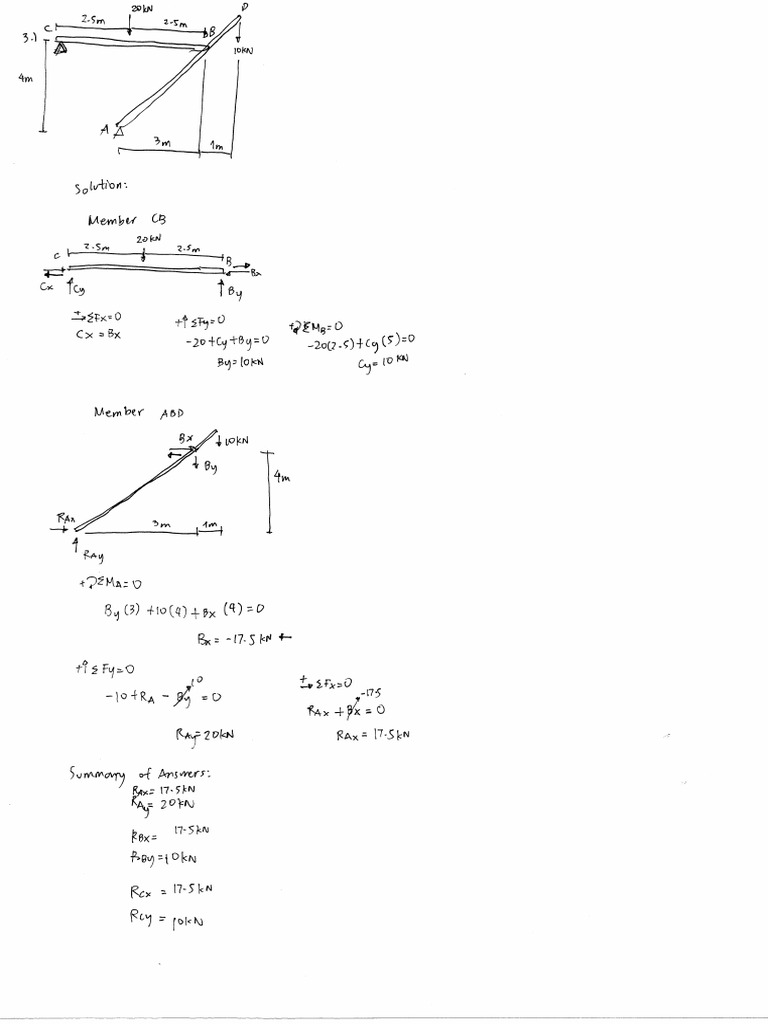 20kN
D
C 2.5m 2.5m B
3.)
10kN
4m
A
3m 1m
Solution:
Member CB
20kN
C 2.5m 2.5m B
Cx Cy By Bx
+→ΣFx=0 +↑ΣFy=0 +↻ΣMB=0
Cx = Bx -20+Cy+By=0 -20(2.5)+Cy(5)=0
By=10kN Cy=10kN
Member ABD
Bx 10kN
By
4m
RAx 3m 1m
RAy
+↻ΣMA=0
By(3)+10(4)+Bx(4)=0
Bx=-17.5kN ←
+↑ΣFy=0 +→ΣFx=0
10 -17.5
-10+RA-By=0 RAx+Bx=0
RAy=20kN RAx=17.5kN
Summary of Answers:
RAx=17.5kN
RAy=20kN
RBx= 17.5kN
RBy=10kN
RCx = 17.5kN
RCy = 10kN